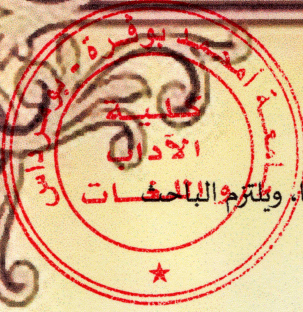 جامعة أمحمد بوقرة - بومرداس
كلية
الآداب
واللغات
، ويلتزم الباحث